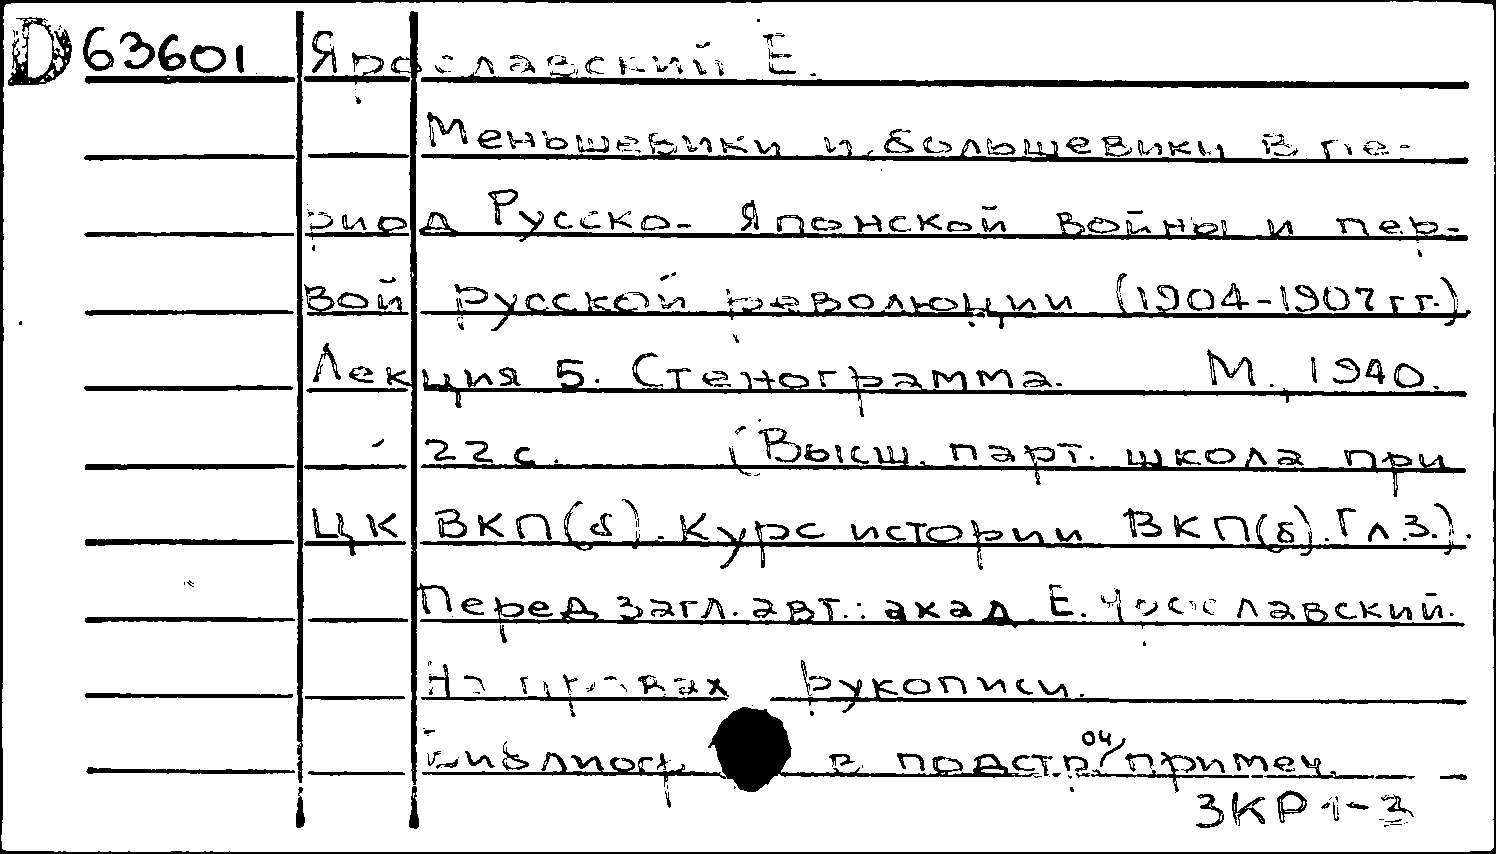 D 63601 Ярославский Е.
Меньшевики и большевики в пе-
риод Русско-Японской войны и пер-
вой русской революции (1904-1907 гг.).
Лекция 5. Стенограмма. М., 1940.
22 с. (Высш. парт. школа при
ЦК ВКП(б). Курс истории ВКП(б). Гл. 3.).
Перед загл. авт.: акад. Е. Ярославский.
На правах рукописи.
Библиогр. в подстроч. примеч.
3КР1-3